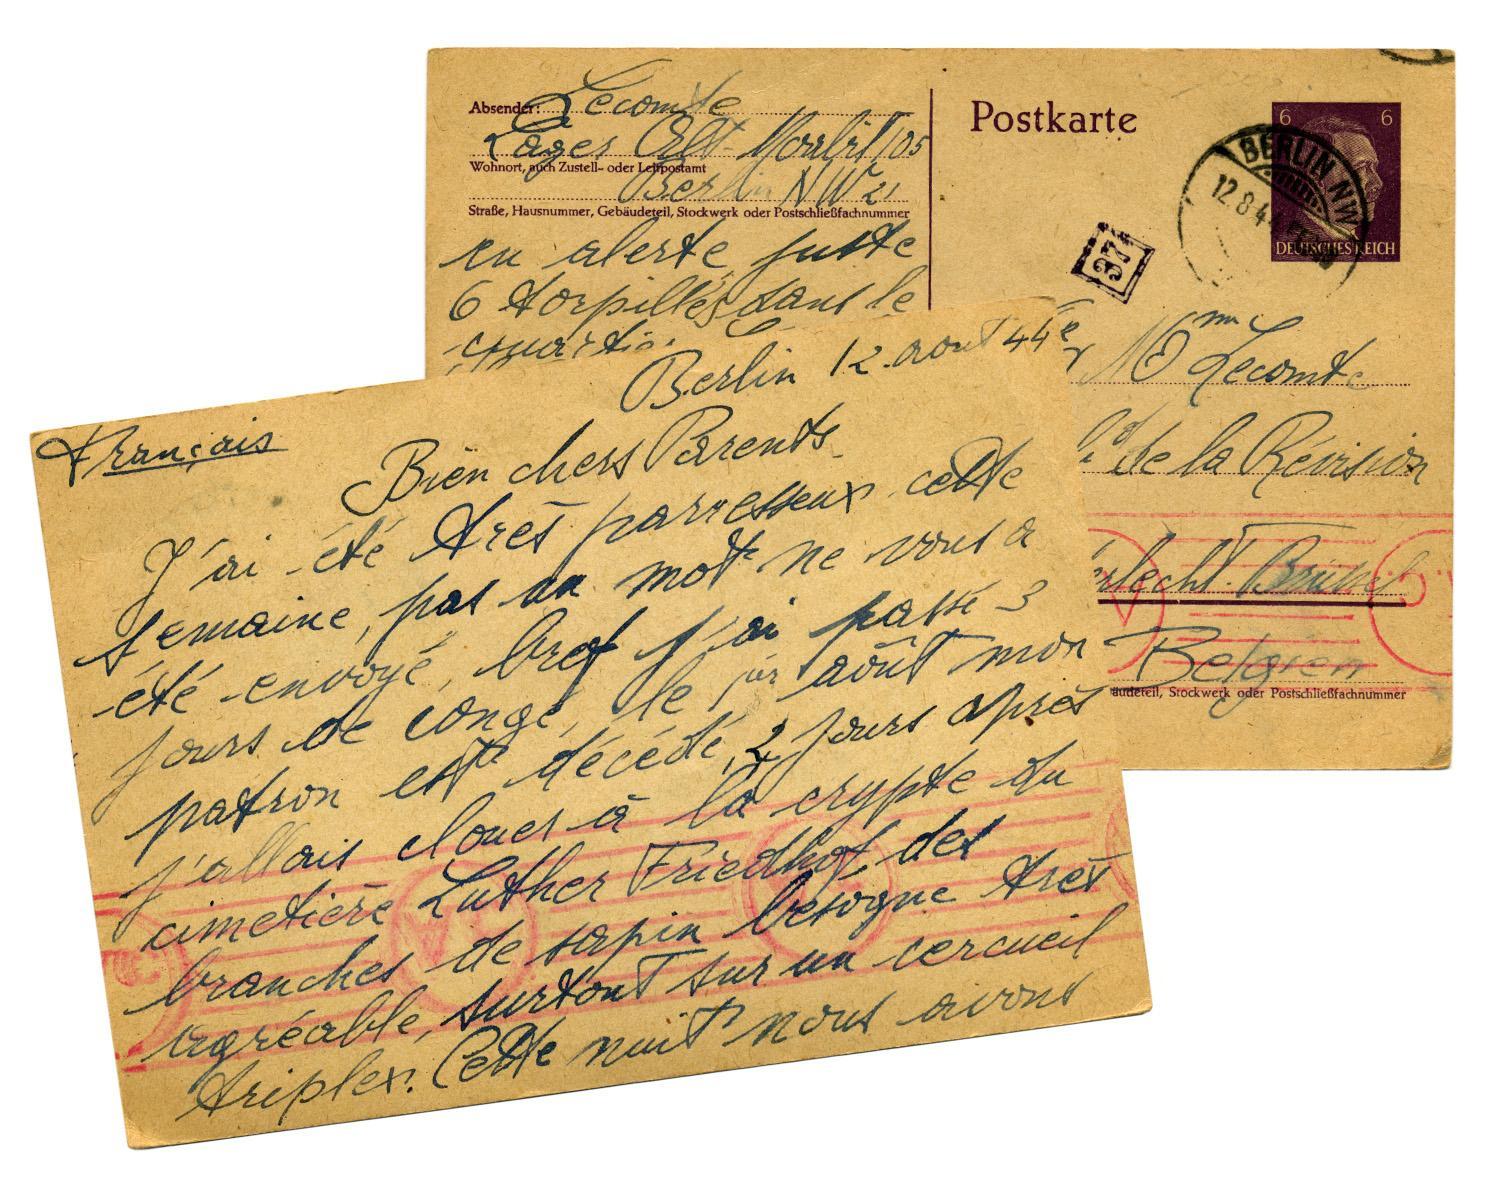 Absender: Lecomte
Lager Alt- Moabit 105
Wohnort, auch Zustell- oder Leitpostamt
Berlin NW 21
Straße, Hausnummer, Gebäudeteil, Stockwerk oder Postschließfachnummer
en alerte, juste
6 torpilles dans le
quartier
Postkarte
6 6
DEUTSCHES REICH
BERLIN NW
12.8.44
37
Mme Lecomte
de la Révision
Brüssel
Belgien
äudeteil, Stockwerk oder Postschließfachnummer
Berlin 12 août 44
Français
Bien chers Parents
J'ai été très parresseux cette
semaine, pas un mot ne vous a
été envoyé, bref j'ai passé 3
jours de congé, le 1er août mon
patron est décédé, 2 jours après
j'allais clouer à la crypte du
cimetière Luther Friedhof, des
branches de sapin besogne très
agréable, surtout sur un cercueil
triplex. Cette nuit nous avons